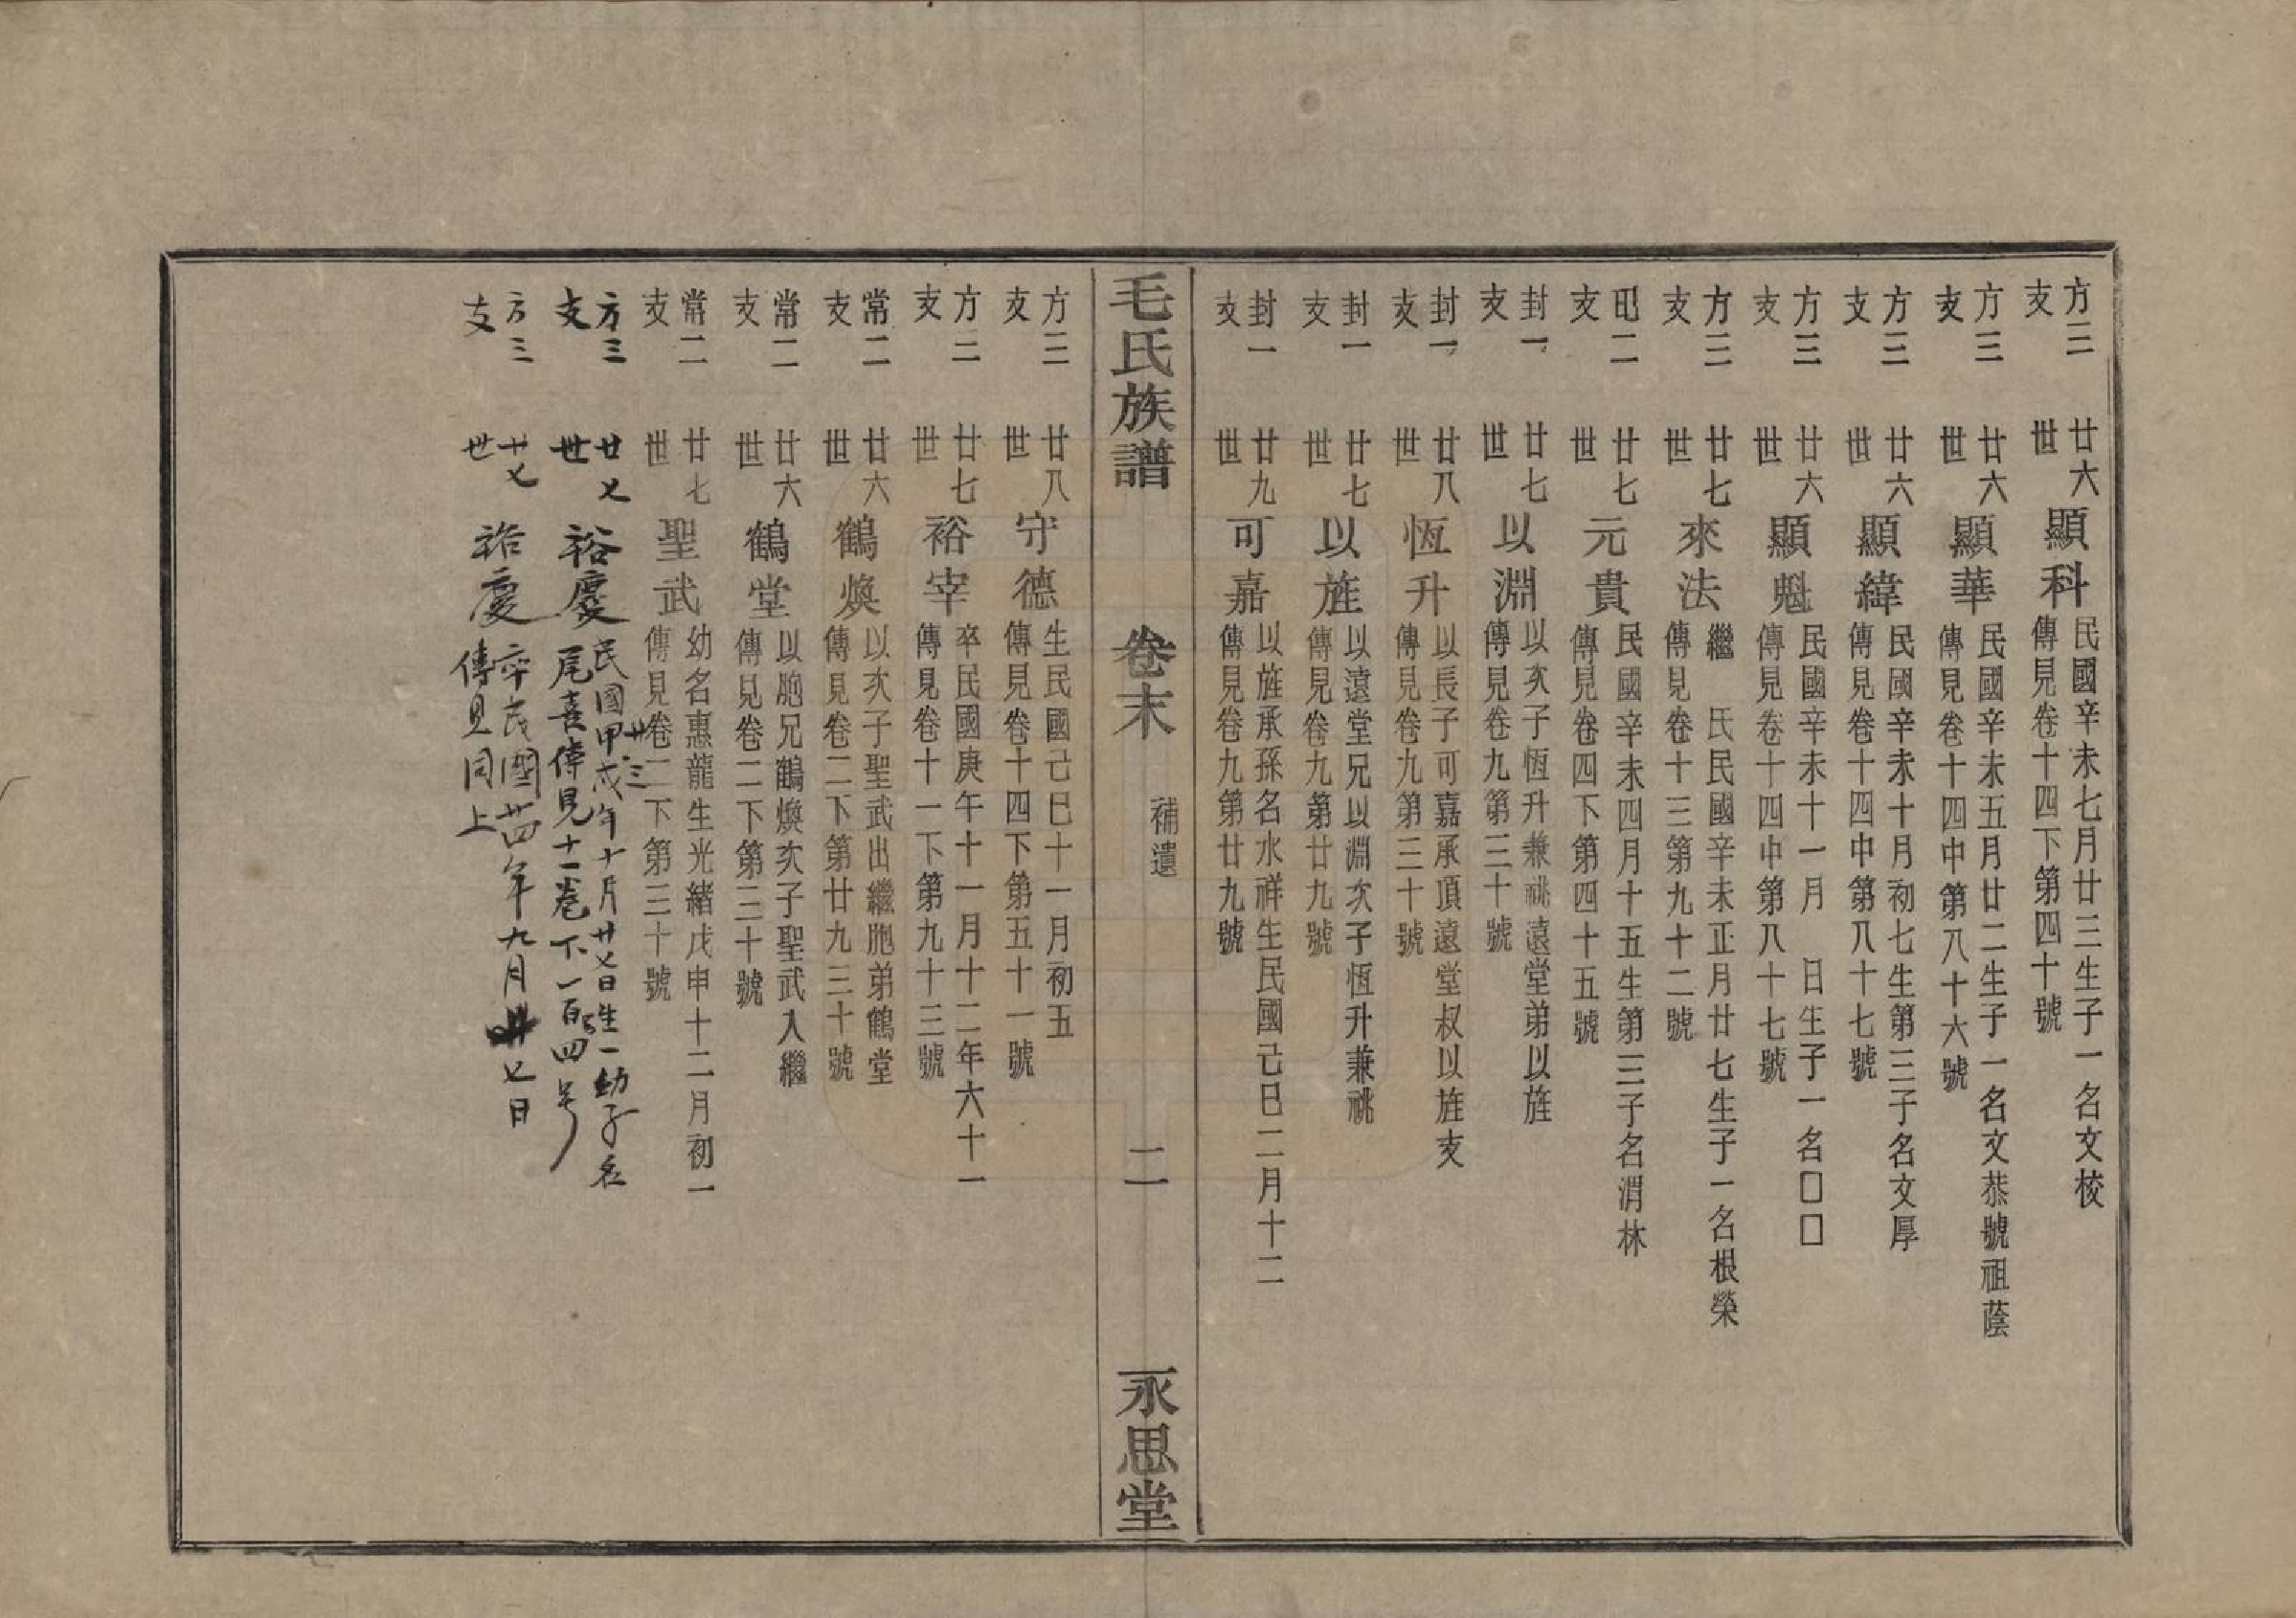 方三支 廿六世 顯科 民國辛未七月廿三生子一名文校
傳見卷十四下第四十號
方三支 廿六世 顯華 民國辛未五月廿二生子一名文恭號祖蔭
傳見卷十四中第八十六號
方三支 廿六世 顯緯 民國辛未十月初七生第三子名文厚
傳見卷十四中第八十七號
方三支 廿六世 顯魁 民國辛未十一月 日生子一名□□
傳見卷十四中第八十七號
方三支 廿七世 來法 繼 氏民國辛未正月廿七生子一名根榮
傳見卷十三第九十二號
昭二支 廿七世 元貴 民國辛未四月十五生第三子名渭林
傳見卷四下第四十五號
封一支 廿七世 以淵 以次子恆升兼祧遠堂弟以旌
傳見卷九第三十號
封一支 廿八世 恆升 以長子可嘉承頂遠堂叔以旌支
傳見卷九第三十號
封一支 廿七世 以旌 以遠堂兄以淵次子恆升兼祧
傳見卷九第廿九號
封一支 廿九世 可嘉 以旌承孫名水祥生民國己巳二月十二
傳見卷九第廿九號
毛氏族譜 卷末 補遺 二 永思堂
方三支 廿八世 守德 生民國己巳十一月初五
傳見卷十四下第五十一號
方二支 廿七世 裕宰 卒民國庚午十一月十二年六十一
傳見卷十一下第九十三號
常二支 廿六世 鶴煥 以次子聖武出繼胞弟鶴堂
傳見卷二下第廿九三十號
常二支 廿六世 鶴堂 以胞兄鶴煥次子聖武入繼
傳見卷二下第三十號
常二支 廿七世 聖武 幼名惠龍生光緒戊申十二月初一
傳見卷二下第三十號
方三支 廿七世 裕慶 民國甲戌年十月廿七日生一幼子名
廿三
尾喜傳見十一卷下一百四号
方三支 廿七世 裕慶 卒民國廿四年九月廿七日
傳見同上